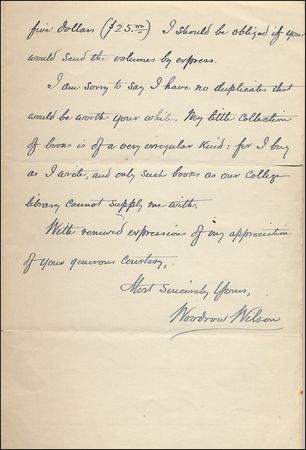 five dollars ($25.00). I should be obliged if you
would send the volumes by express.
I am sorry to say I have no duplicates that
would be worth your while. My little collection
of books is of a very irregular kind: for I buy
as I write, and only such books as our College
library cannot supply me with.
With renewed expressions of my appreciation
of your generous courtesy,
Most Sincerely Yours,
Woodrow Wilson